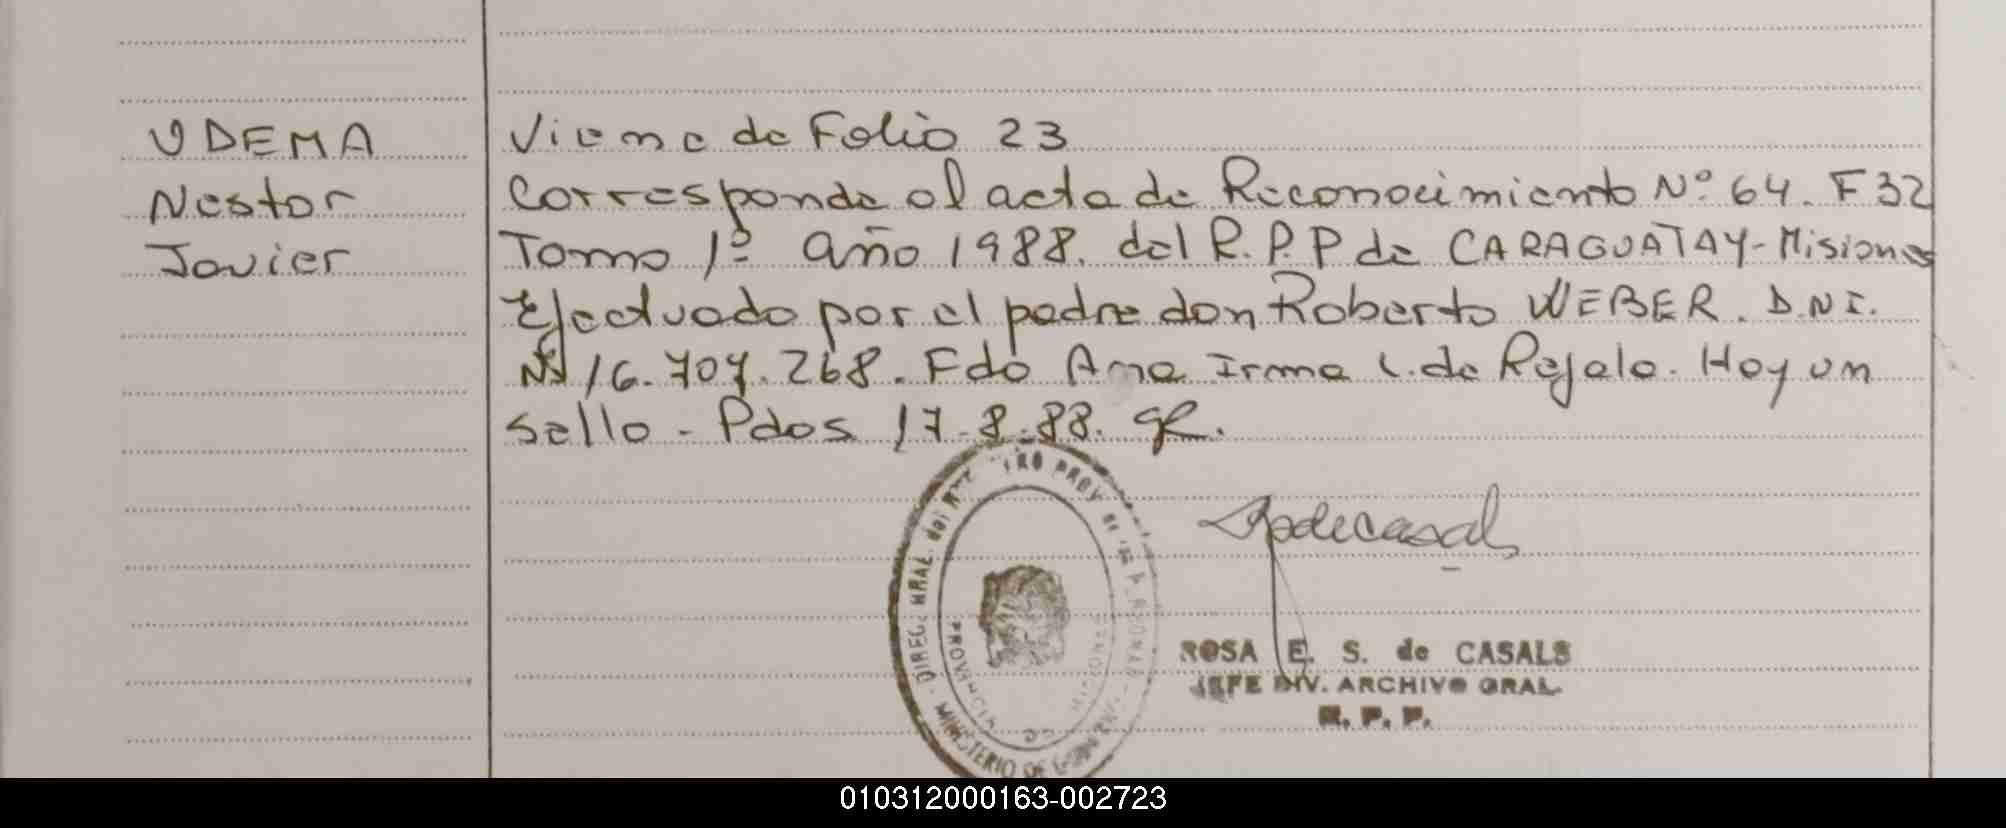 UDEMA
Nestor
Javier
Viene de Folio 23
Corresponde al acta de Reconocimiento Nº 64. F 32
Tomo 1º año 1988. del R.P.P de CARAGUATAY-Misiones
Efectuado por el padre don Roberto WEBER. D.N.I.
Nº 16.707.268. Fdo Ana Irma L. de Rejalo. Hay un
sello - Pdos 17-8-88.
DIREC. GRAL. del PROV. de las PERSONAS
MINISTERIO DE
PROVINCIA DE MISIONES
ROSA E. S. de CASALS
JEFE DIV. ARCHIVO GRAL.
R. P. P.
010312000163-002723